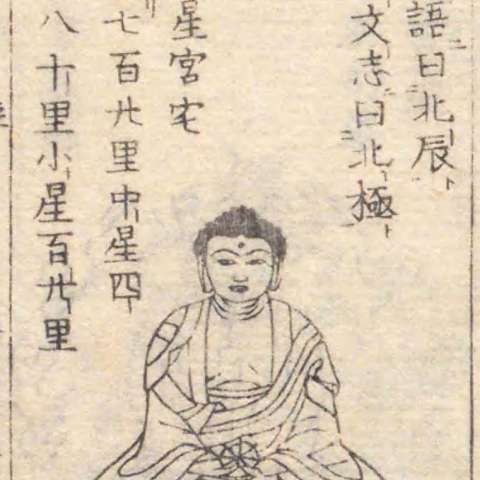 語曰北辰
文志曰北極
星宮宅
七百廿里中星四
八十里小星百廿里